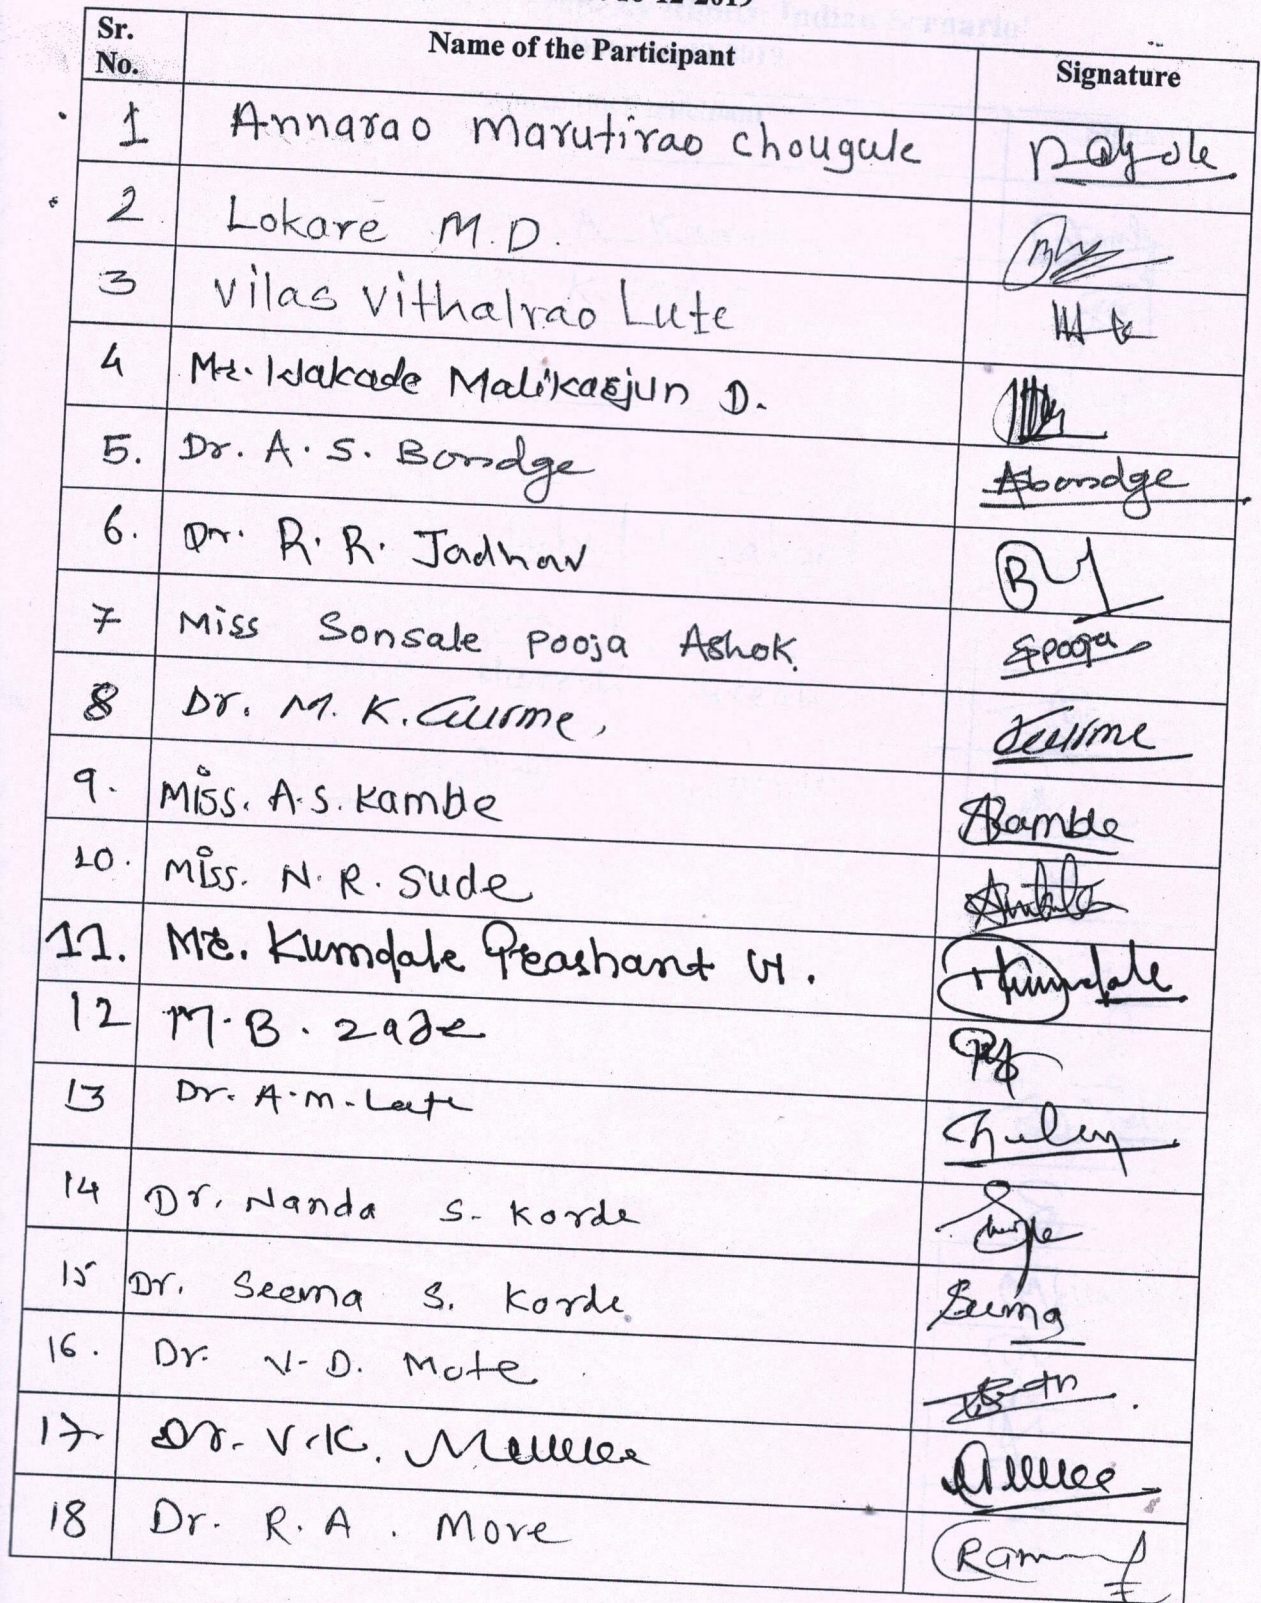 12-2019
Sr. No. Name of the Participant Signature
1 Annarao Marutirao Chougule
2 Lokare M.D.
3 Vilas Vithalrao Lute
4 Mr. Wakade Malikarjun D.
5. Dr. A. S. Bondge Abondge
6. Dr. R. R. Jadhav
7 Miss Sonsale Pooja Ashok. Spooja
8 Dr. M. K. Gurme, Gurme
9. Miss. A. S. Kamble Kamble
10. Miss. N. R. Sude
11. Mr. Kumdale Prashant H. Kumdale
12 M. B. Zade
13 Dr. A. M. Late
14 Dr. Nanda S. Korde
15 Dr. Seema S. Korde Seema
16. Dr. V. D. Mote
17. Dr. V. K.
18 Dr. R. A. More